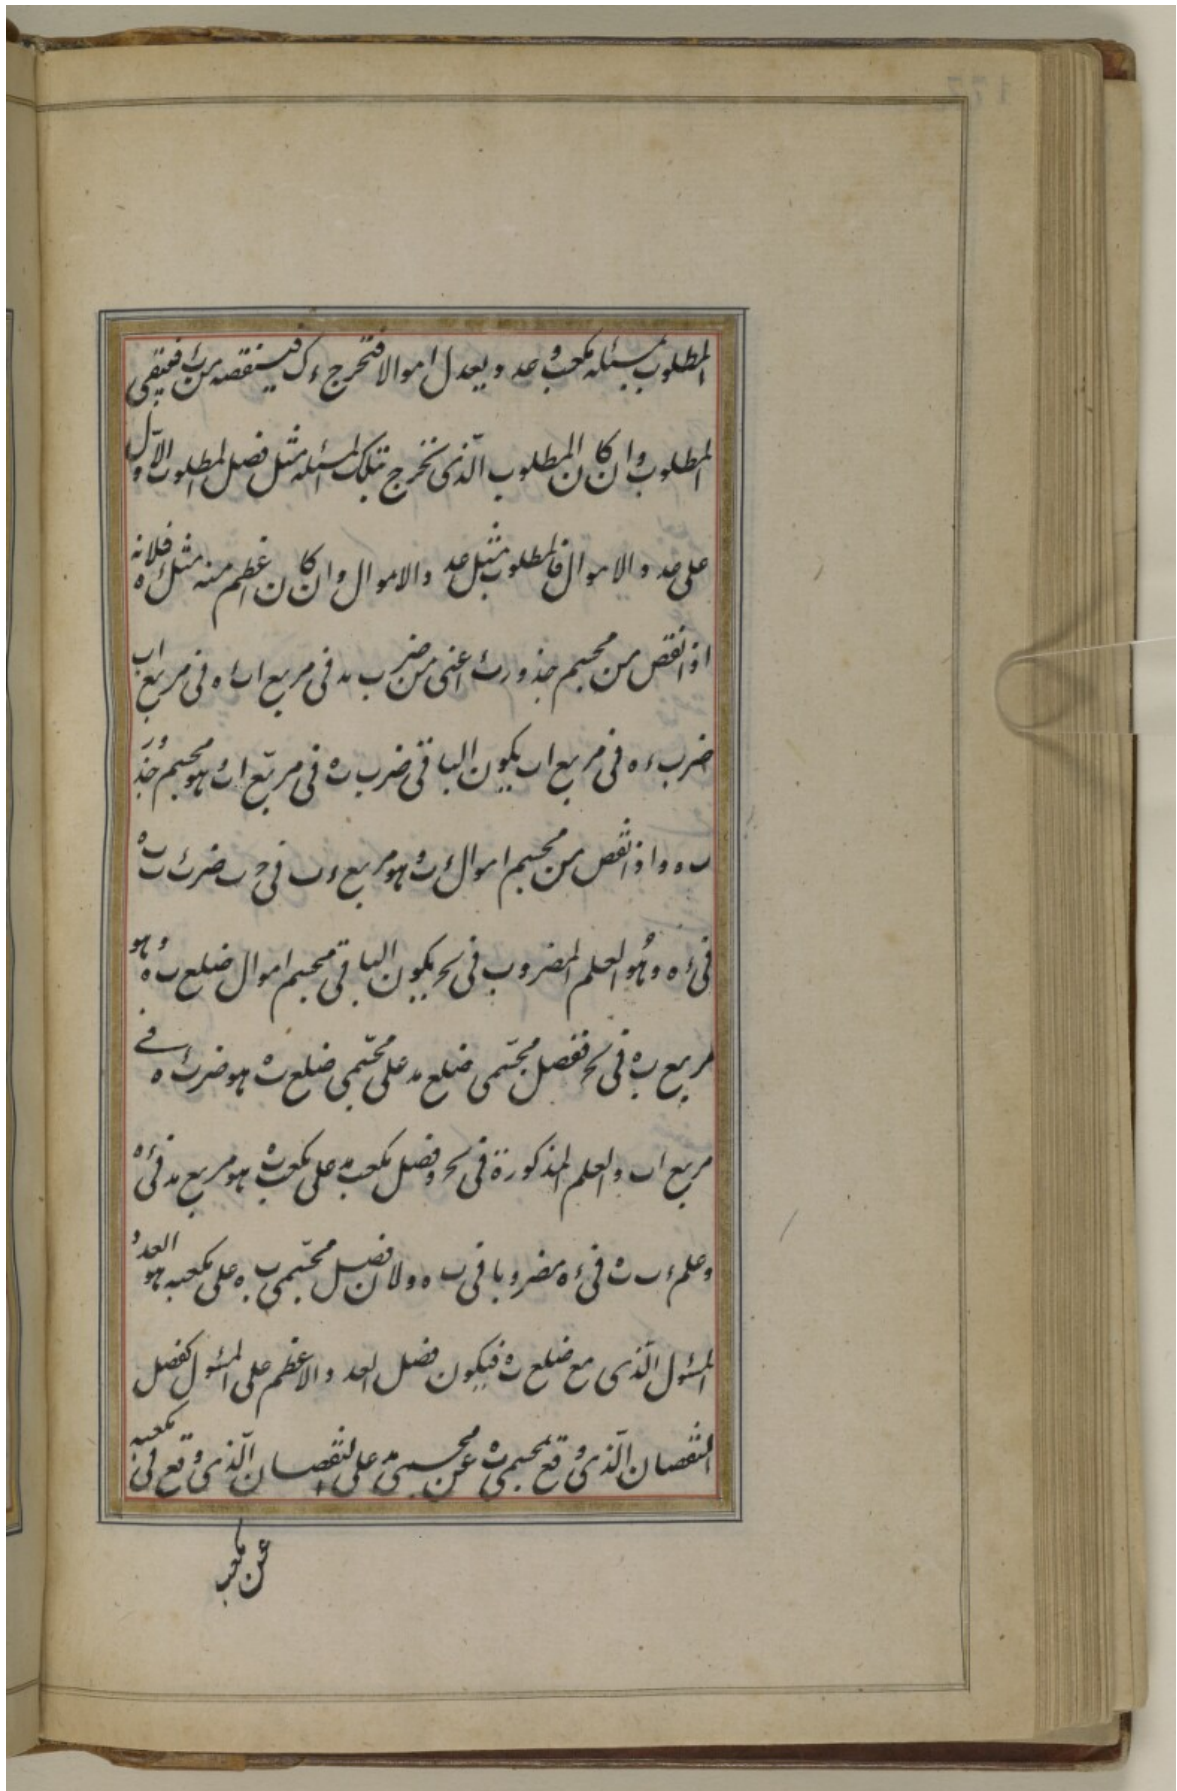 المطلوب بمسئلة مكعب وعدد يعدل اموالا فتخرج ءك فينقصه من ب فيبقى
المطلوب وان كان المطلوب الّذى تخرج بتلك المسئلة مثل فضل المطلوب الاوّل
على عدد الاموال فالمطلوب مثل عدد الاموال وان كان اعظم منه مثل ءه فلانه
اذا نقص من مجسم جذور ب اعنى من ضرب ىد فى مربع اب ا ه فى مربع اب
ضرب ءه فى مربع اب يكون الباقى ضرب ب ه فى مربّع اب وهو مجسم جذور
ب ه واذا نقص من مجسم اموال ءب وهو مربع ءب فى ح ب ضرب ب ه
فى ءه وهو العلم المضروب فى بح يكون الباقى مجسم اموال ضلع ب ه وهو
مربع ب ه فى بح ففضل مجسّمى ضلع ىد على مجسّمى ضلع ب ه هو ضرب ءه فى
مربع اب والعلم المذكورة فى بح وفضل مكعب ىد على مكعب ب ه هو مربع ىد فى ءه
وعلم ءب ب ه فى ءه مضروبا فى ب ه ولان فضل مجسّمى ب ه على مكعبه هو العدد
المسئول الّذى مع ضلع ب ه فيكون فضل العدد الاعظم على المسئول كفضل
النقصان الّذى وقع بمجسمى ب ه عن مجسمى ىد على النقصان الّذى وقع فى مكعبه
عن مكعب